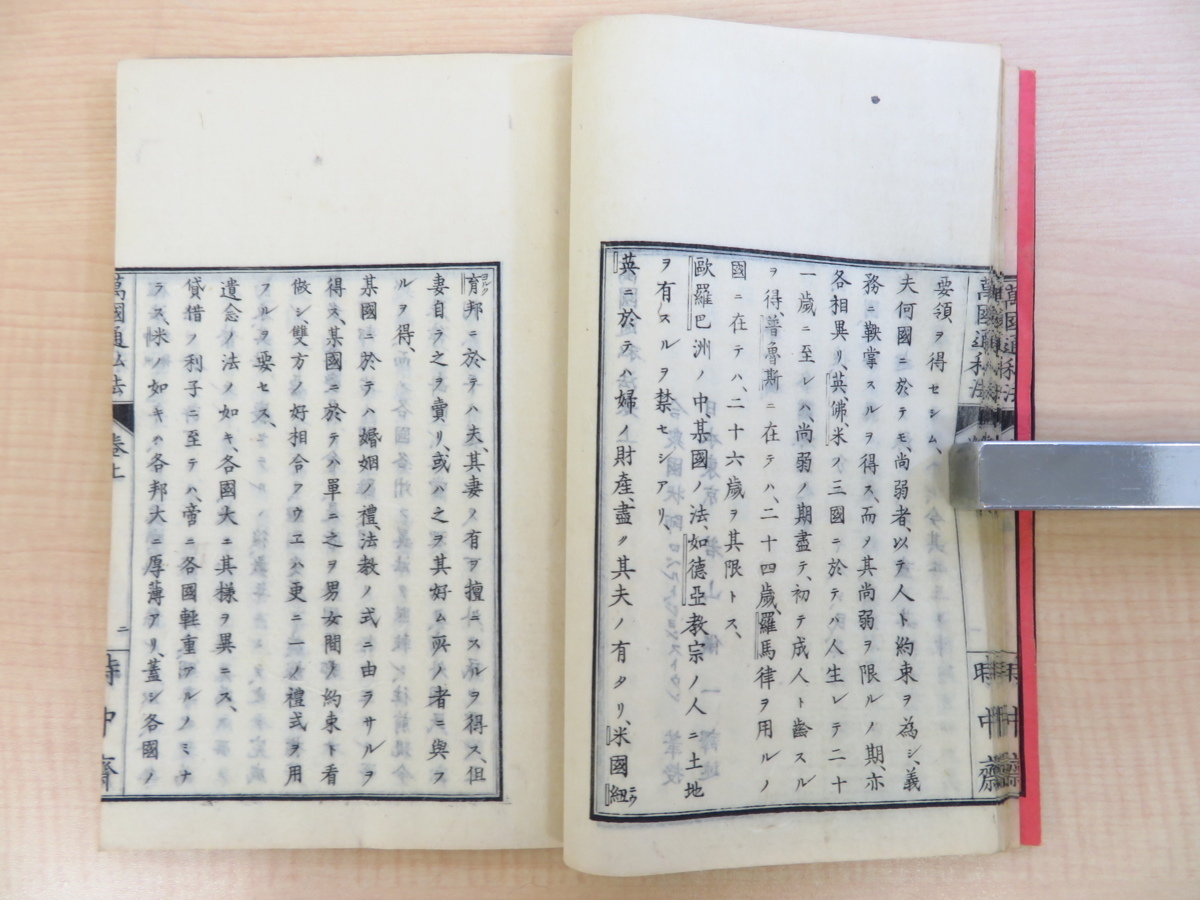 要領ヲ得セシム、
夫何國ニ於テモ、尚弱者、以テ人ト約束ヲ為シ、義
務ニ鞅掌スルヲ得ス、而ノ其尚弱ヲ限ルノ期、亦
各相異リ、英、佛、米ノ三國ニ於テハ、人生レテ二十
一歳ニ至レハ、尚弱ノ期盡テ、初テ成人ト齒スル
ヲ得、普魯斯ニ在テハ、二十四歳、羅馬律ヲ用ルノ
國ニ在テハ、二十六歳ヲ其限トス、
歐羅巴洲ノ中、某國ノ法、如德亞教宗ノ人ニ土地
ヲ有スルヲ禁セシアリ、
英ニ於テハ婦ノ財産、盡ク其夫ノ有タリ、米國紐
育邦ニ於テハ、夫、其妻ノ有ヲ擅ニスルヲ得ス、但
妻自ラ之ヲ賣リ、或ハ之ヲ其好ム所ノ者ニ與フ
ルヲ得、
某國ニ於テハ婚姻ノ禮、法教ノ式ニ由ラサルヲ
得ス、某國ニ於テハ單ニ之ヲ男女間ノ約束ト看
做シ、雙方ノ好相合フウエハ更ニ一ノ禮式ヲ用
フルヲ要セス、
遺念ノ法ノ如キ、各國大ニ其樣ヲ異ニス、
貸借ノ利子ニ至テハ、啻ニ各國輕重アルノミナ
ラス、米ノ如キハ各邦大ニ厚薄アリ、蓋シ各國ノ
萬國通私法
卷上
二
時中齋